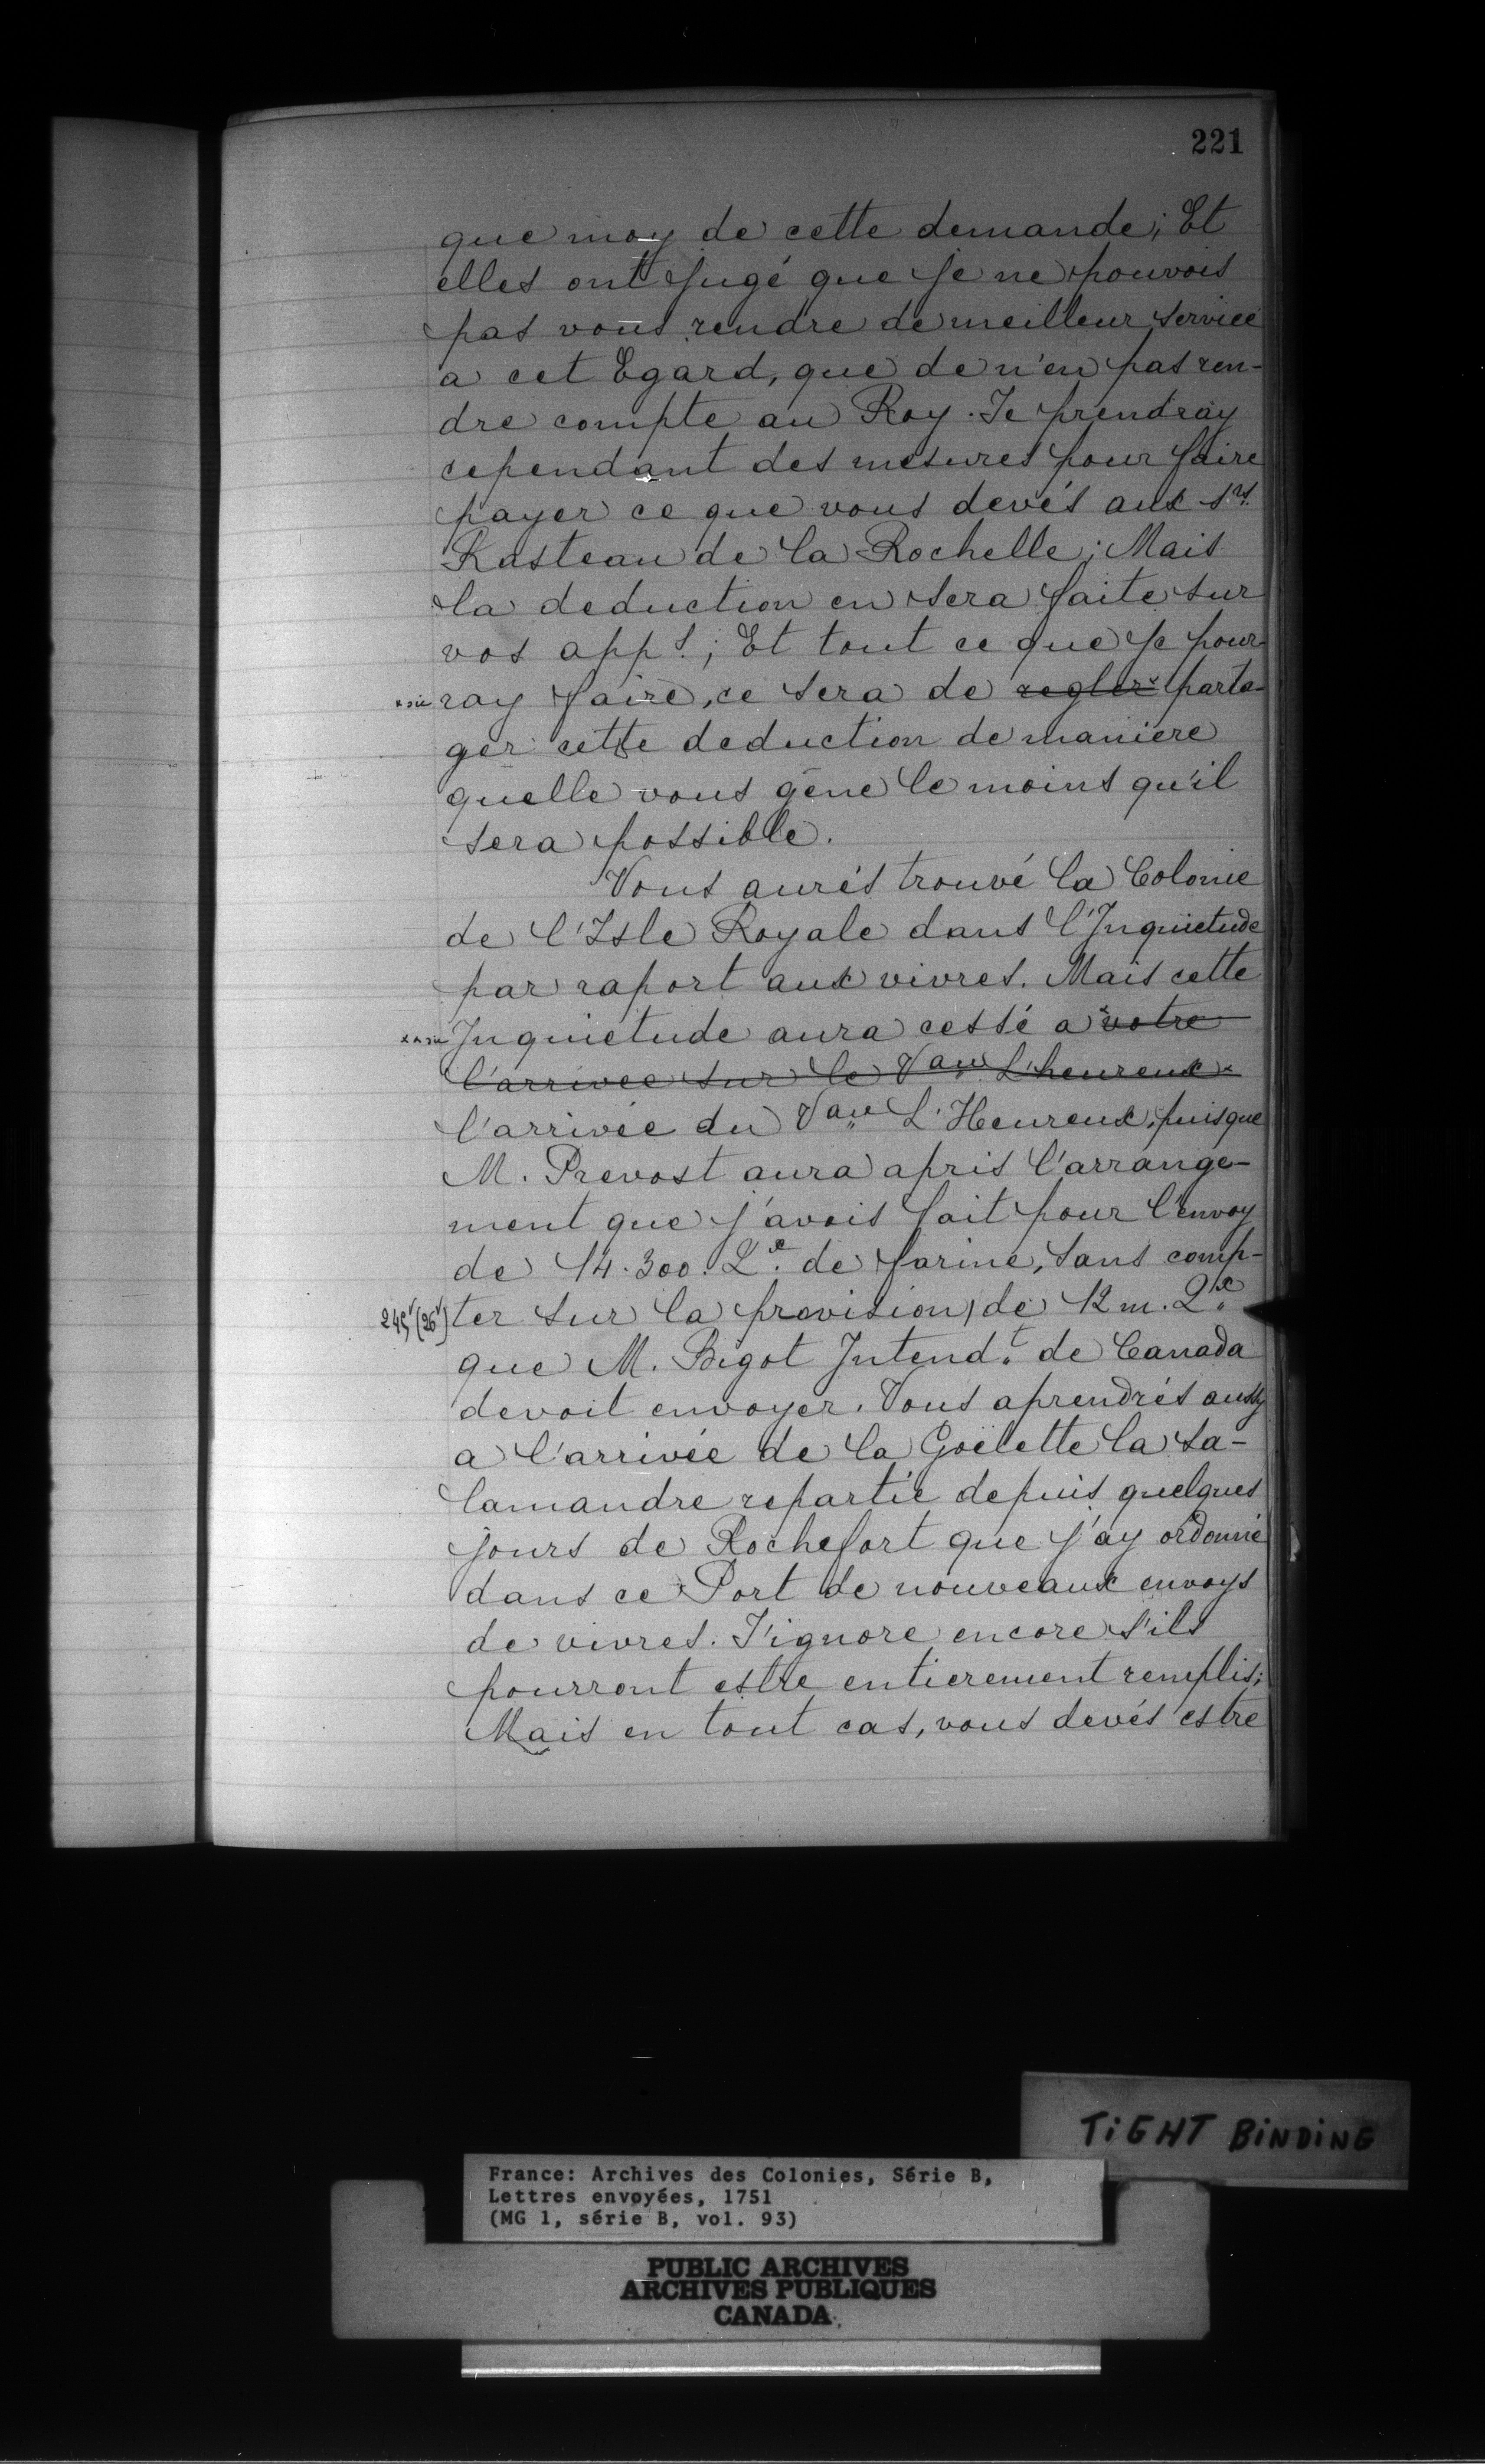 221
que moy de cette demande; Et
elles ont jugé que je ne pouvois
pas vous rendre de meilleur service
a cet Egard, que de n'en pas ren-
dre compte au Roy. Je prendray
cependant des mesures pour faire
payer ce que vous devés aux Srs.
Rasteau de la Rochelle; Mais
la deduction en sera faite sur
vos appt.; Et tout ce que je pour-
x sic ray faire, ce sera de regler x parta-
ger cette deduction de maniere
quelle vous gêne le moins qu'il
sera possible.
Vous aurés trouvé la Colonie
de l'Isle Royale dans l'Inquietude
par raport aux vivres. Mais cette
x x sic Inquietude aura cessé a x votre
l'arrivee sur le Vau L'heureux x
l'arrivée du Vau L'Heureux, puisque
M. Prevost aura apris l'arrange-
ment que j'avois fait pour l'envoy
de 14.300. Qx. de farine, sans comp-
249v (26v) ter sur la provision de 12 m. Qx.
que M. Bigot Intendt. de Canada
devoit envoyer. Vous aprendrés aussy
a l'arrivée de la Goëlette la Sa-
lamandre repartie depuis quelques
jours de Rochefort que j'ay ordonné
dans ce Port de nouveaux envoys
de vivres. J'ignore encore s'ils
pourront estre entierement remplis;
Mais en tout cas, vous devés estre
TIGHT BINDING
France: Archives des Colonies, Série B,
Lettres envoyées, 1751
(MG 1, série B, vol. 93)
PUBLIC ARCHIVES
ARCHIVES PUBLIQUES
CANADA